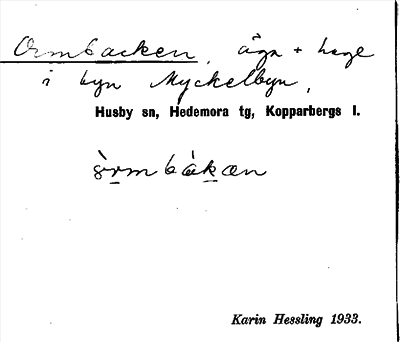 Ormbacken, äga + hage
i byn Myckelbyn,
Husby sn, Hedemora tg, Kopparbergs l.
òrmbàkæn
Karin Hessling 1933.